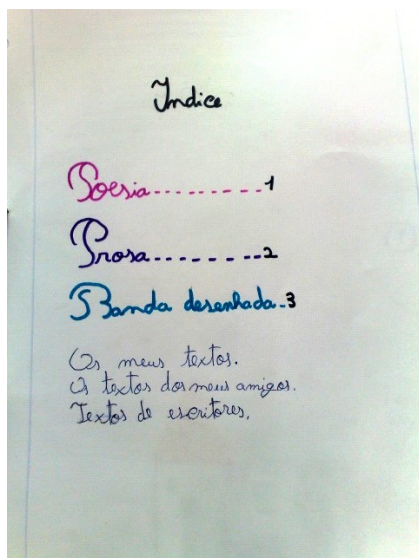 Indice
Poesia.........1
Prosa........2
Banda desenhada..3
Os meus textos.
Os textos dos meus amigos.
Textos de escritores.